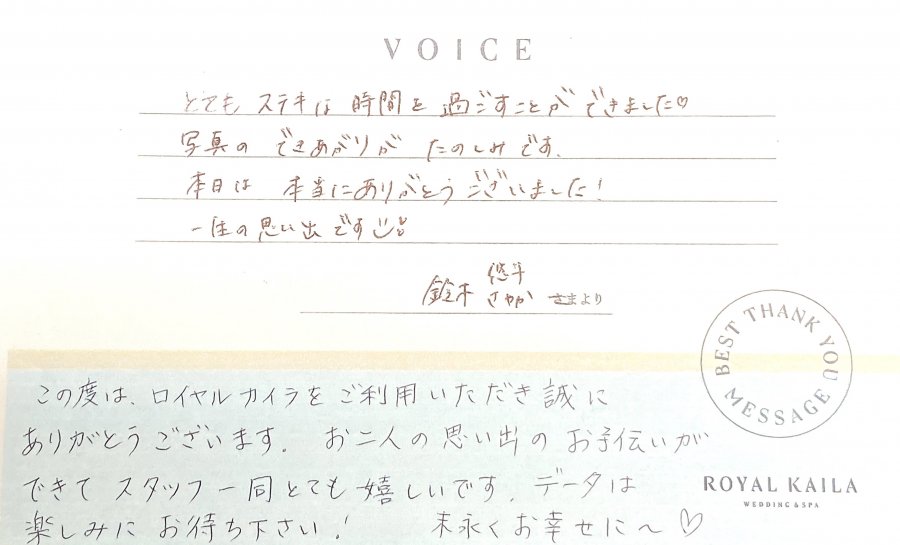 VOICE
とてもステキな時間を過ごすことができました♡
写真のできあがりがたのしみです。
本日は本当にありがとうございました!
一生の思い出です
鈴木 悠斗
さやか さまより
BEST THANK YOU MESSAGE
この度は、ロイヤルカイラをご利用いただき誠に
ありがとうございます。お二人の思い出のお手伝いが
できてスタッフ一同とても嬉しいです。データは
楽しみにお待ち下さい! 末永くお幸せに〜♡
ROYAL KAILA
WEDDING & SPA